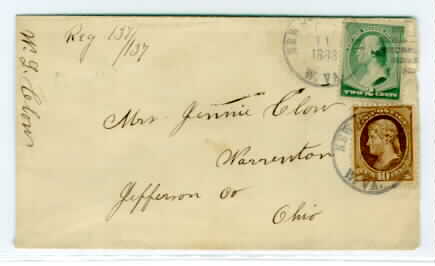 W. G. Clow
Reg 137/137
NEW
11
188
W. VA.
TWO CENTS
Mrs. Jennie Clow
Warrenton
Jefferson Co
Ohio
NEW
W. VA.
10